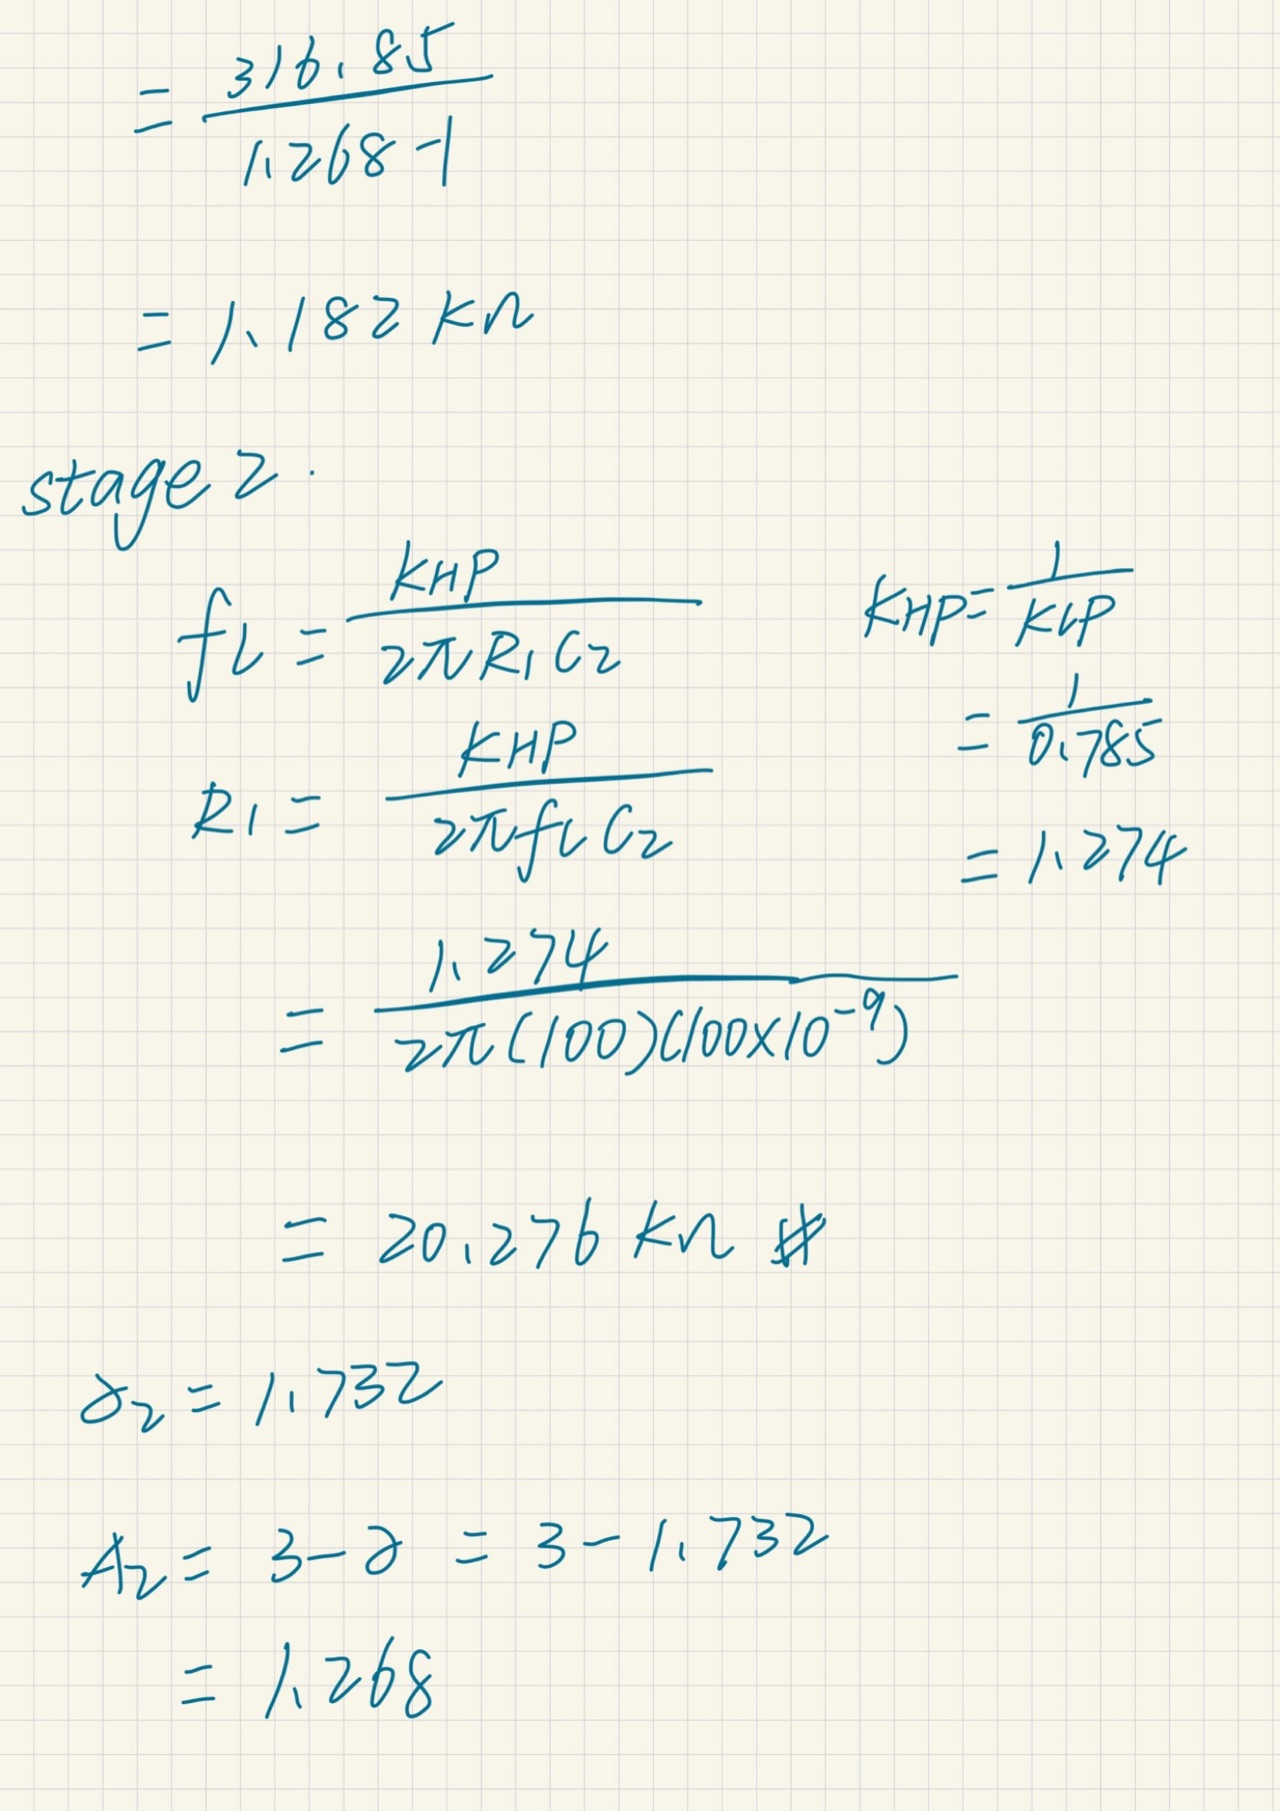 = 316.85 / 1.268-1
= 1.182 KΩ
stage 2.
fL = KHP / 2πR1C2
KHP = 1 / KLP
= 1 / 0.785
= 1.274
R1 = KHP / 2πfLC2
= 1.274 / 2π(100)(100×10⁻⁹)
= 20.276 KΩ #
∂2 = 1.732
A2 = 3-∂ = 3-1.732
= 1.268